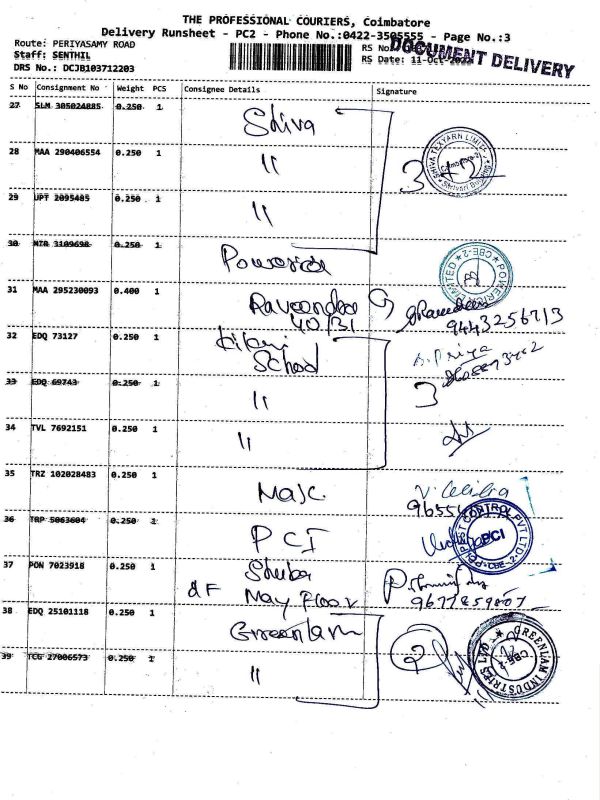 THE PROFESSIONAL COURIERS, Coimbatore
Delivery Runsheet - PC2 - Phone No.:0422-3505555 - Page No.:3
Route: PERIYASAMY ROAD
RS No
DOCUMENT DELIVERY
Staff: SENTHIL
RS Date: 11-Oct-
DRS No.: DCJB103712203
S No Consignment No Weight PCS Consignee Details Signature
27 SLM 305024885 0.250 1 Shiva
28 MAA 290406554 0.250 1 "
SHIVA TEXYARN LIMITED
Coimbatore-2
3
29 UPT 2095485 0.250 1 "
30 NZR 3109698 0.250 1
CBE-2
31 MAA 295230093 0.400 1
40/31
9443256713
32 EDQ 73127 0.250 1 Kikani
School
S. Priya
33 EDQ 69743 0.250 1 "
3
34 TVL 7692151 0.250 1 "
35 TRZ 102028483 0.250 1
36 TRP 5063604 0.250 1 PCI
PEST CONTROL PVT LTD
PCI
CBE-2
37 PON 7023918 0.250 1
May Floor
38 EDQ 25101118 0.250 1 Greenlam
39 TCG 27006573 0.250 1 "
2
GREENLAM INDUSTRIES LTD
CBE-2